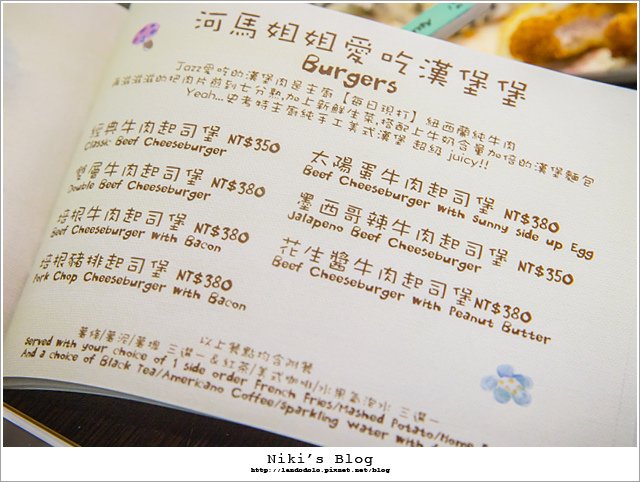 河馬姐姐愛吃漢堡堡
Burgers
Jazz愛吃的漢堡肉是主廚【每日現打】紐西蘭純牛肉
滋滋滋的把肉片煎到七分熟,加上新鮮生菜,搭配上牛奶含量加倍的漢堡麵包
Yeah...史考特主廚純手工美式漢堡 超級 juicy!!
經典牛肉起司堡 NT$350
Classic Beef Cheeseburger
雙層牛肉起司堡 NT$380
Double Beef Cheeseburger
培根牛肉起司堡 NT$380
Beef Cheeseburger with Bacon
培根豬排起司堡 NT$380
Pork Chop Cheeseburger with Bacon
太陽蛋牛肉起司堡 NT$380
Beef Cheeseburger with Sunny side up Egg
墨西哥辣牛肉起司堡 NT$350
Jalapeno Beef Cheeseburger
花生醬牛肉起司堡 NT$380
Beef Cheeseburger with Peanut Butter
以上餐點均含附餐
薯條/薯泥/薯塊 三選一 & 紅茶/美式咖啡/水果氣泡水 三選一
served with your choice of 1 side order French Fries/Mashed Potato/Home
And a choice of Black Tea/Americano Coffee/Sparkling Water with
Niki's Blog
http://landodolo.pixnet.net/blog